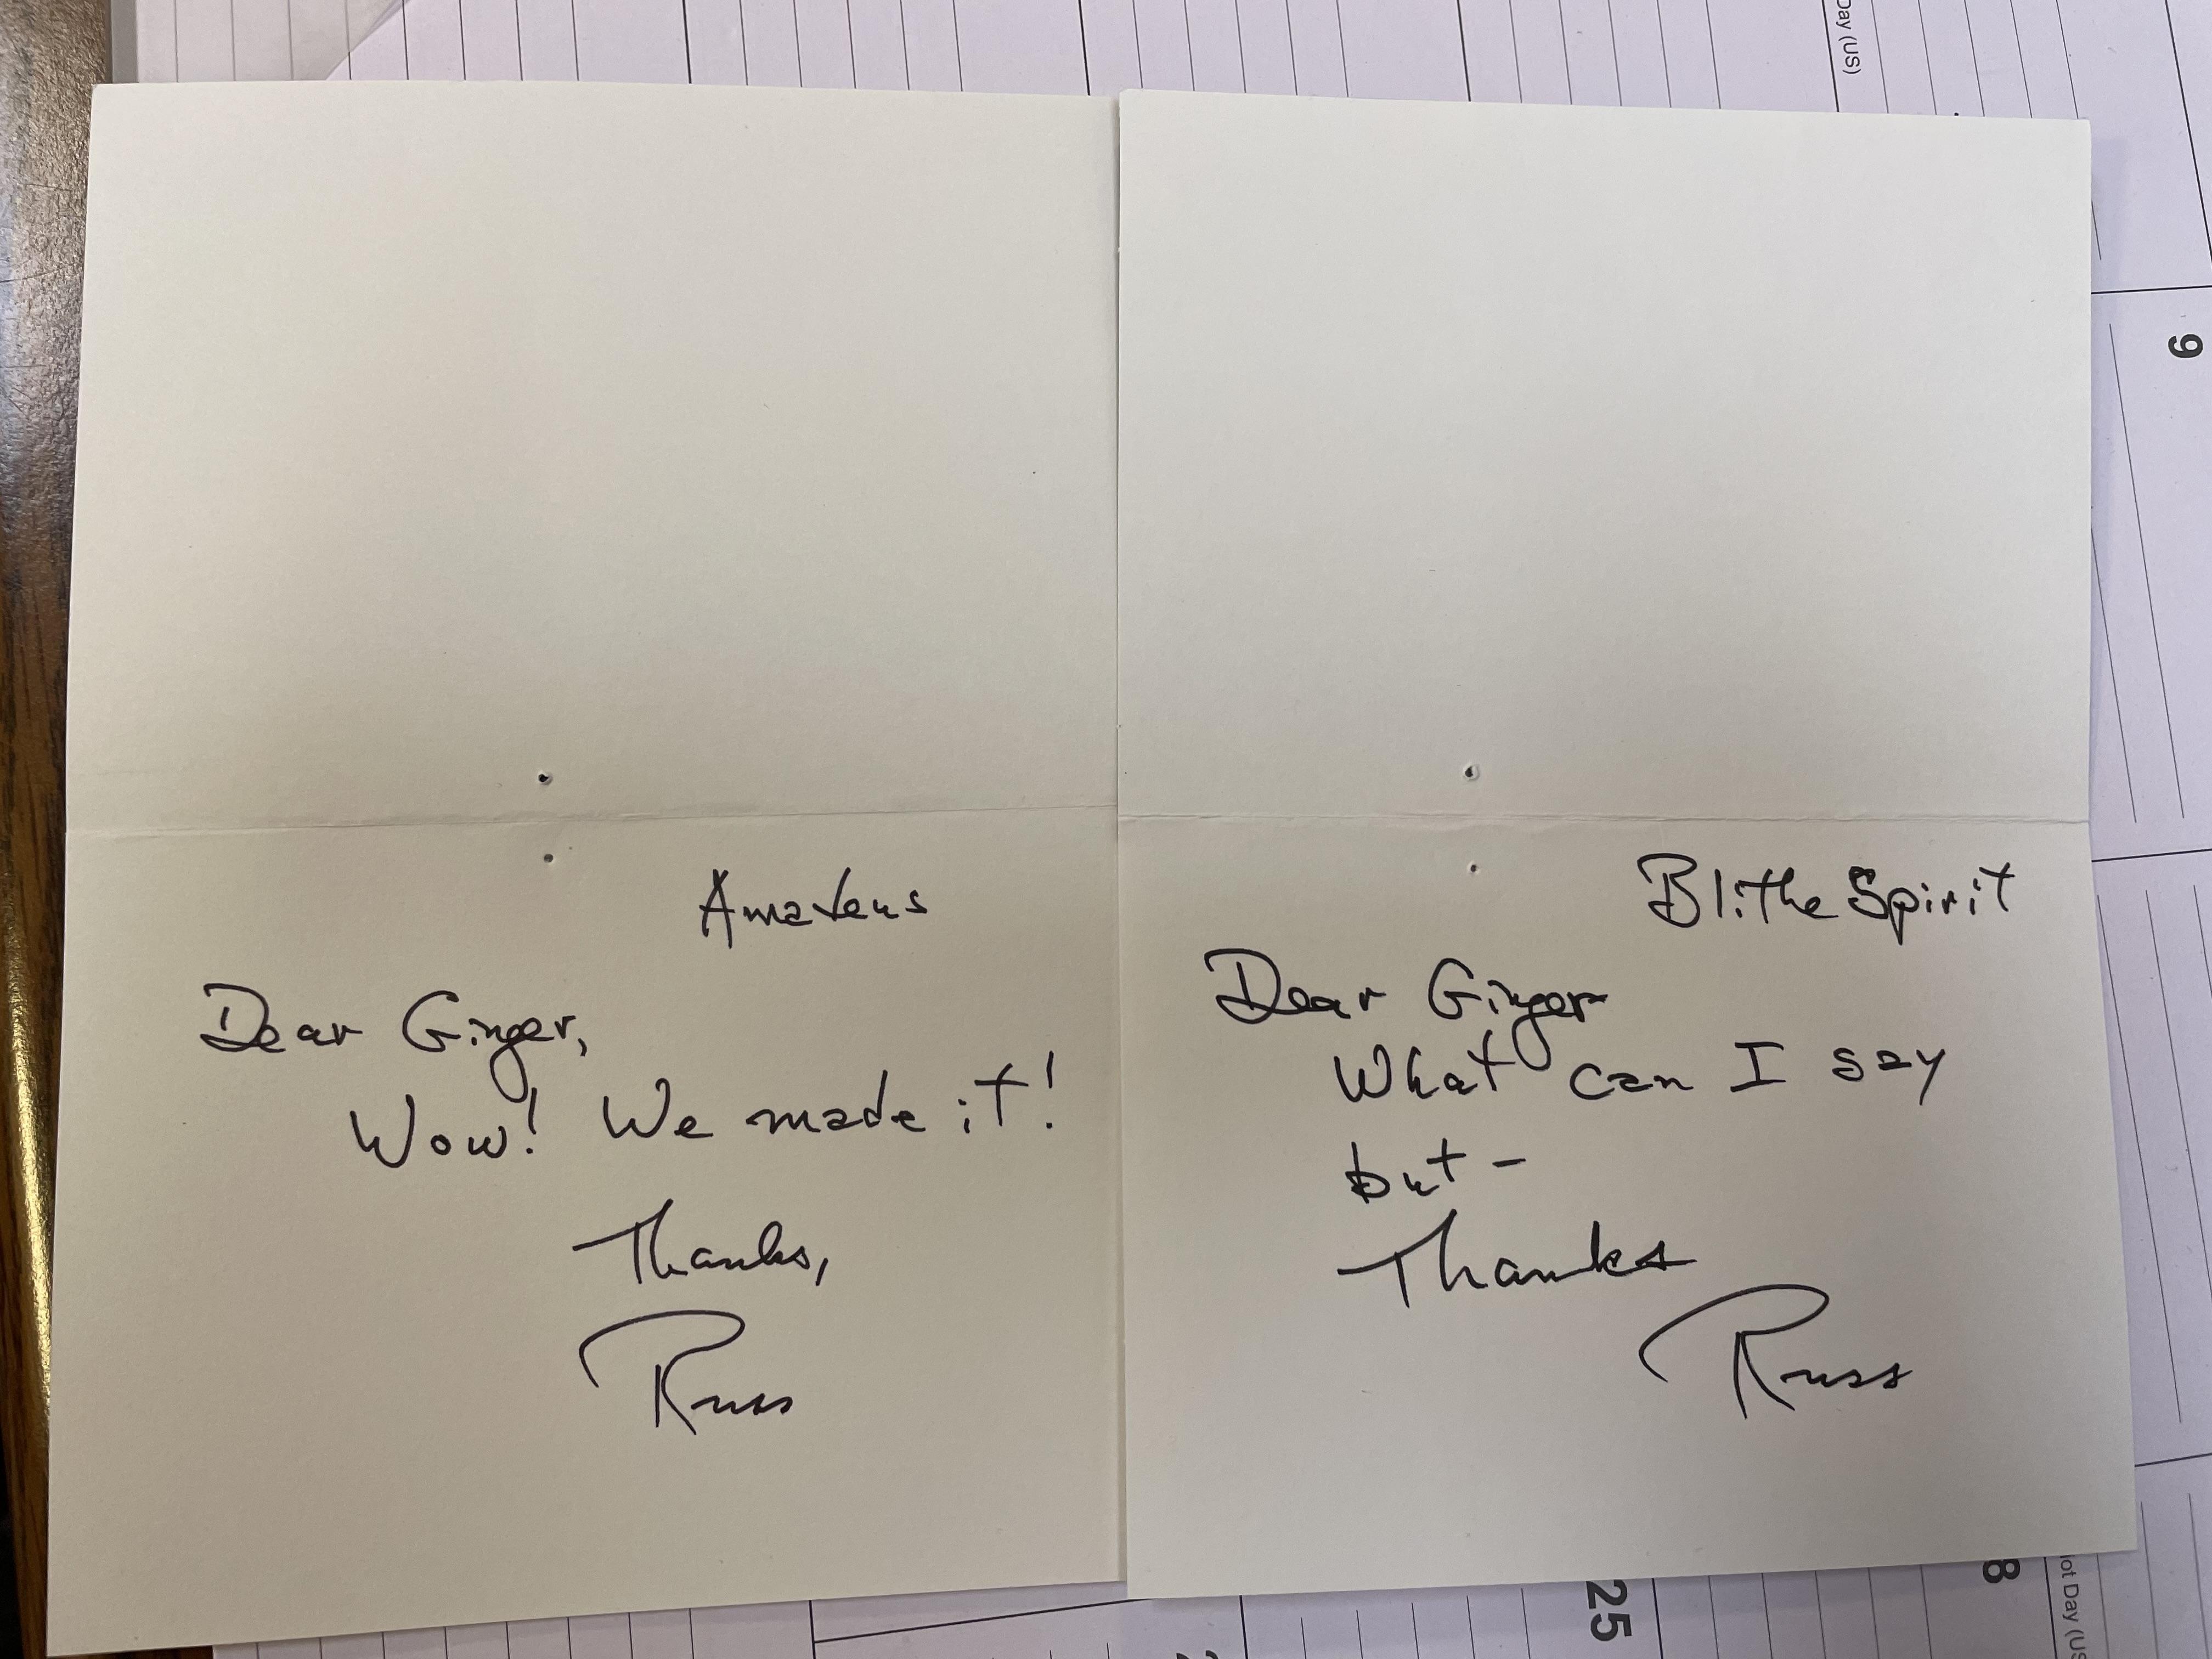 Amadeus
Dear Ginger,
Wow! We made it!
Thanks,
Russ
Blithe Spirit
Dear Ginger
What can I say
but -
Thanks
Russ
Day (US)
9
25
8
ot Day (US